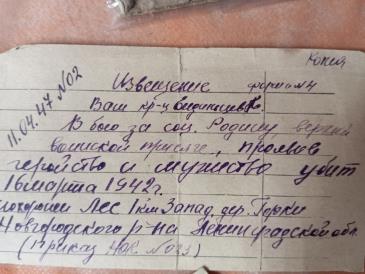 Копия
Извещение форма №4
11.04.47 №02
Ваш кр-ц
В бою за соц. Родину, верный
воинской присяге, проявив
геройство и мужество убит
16 марта 1942г.
похоронен Лес 1 км Запад. дер. Горки
Новгородского р-на Ленинградской обл.
(Приказ НОК №023)